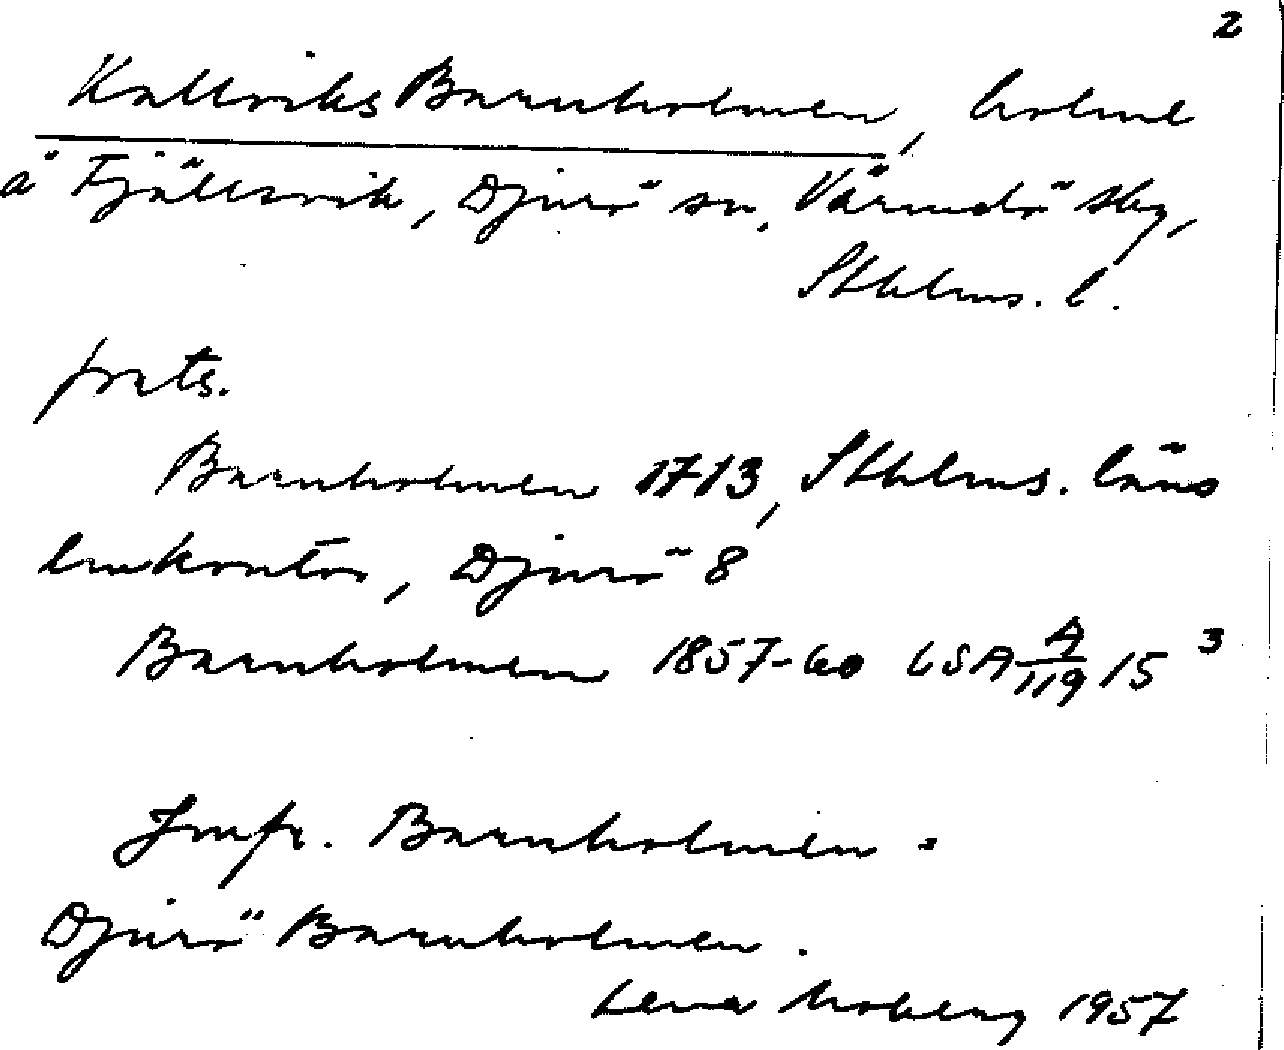 2
Kallviks Barnholmen, holme
å Fjällsvik, Djurö sn, Värmdö skg,
Sthlms. l.
forts.
Barnholmen 1713, Sthlms. läns
lmkontor, Djurö 8
Barnholmen 1857-60 LSA A/119 15 3
Jmfr. Barnholmen =
Djurö Barnholmen.
Lena Moberg 1957